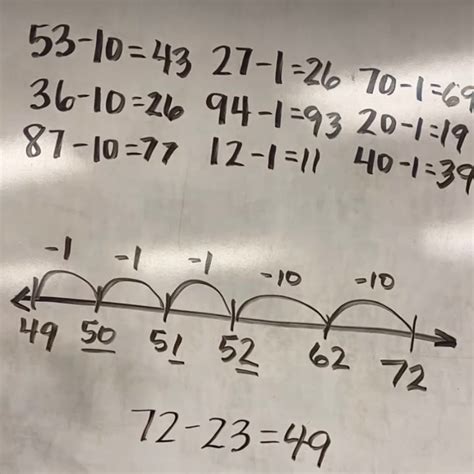 53-10=43 27-1=26 70-1=69
36-10=26 94-1=93 20-1=19
87-10=77 12-1=11 40-1=39
-1 -1 -1 -10 -10
49 50 51 52 62 72
72-23=49